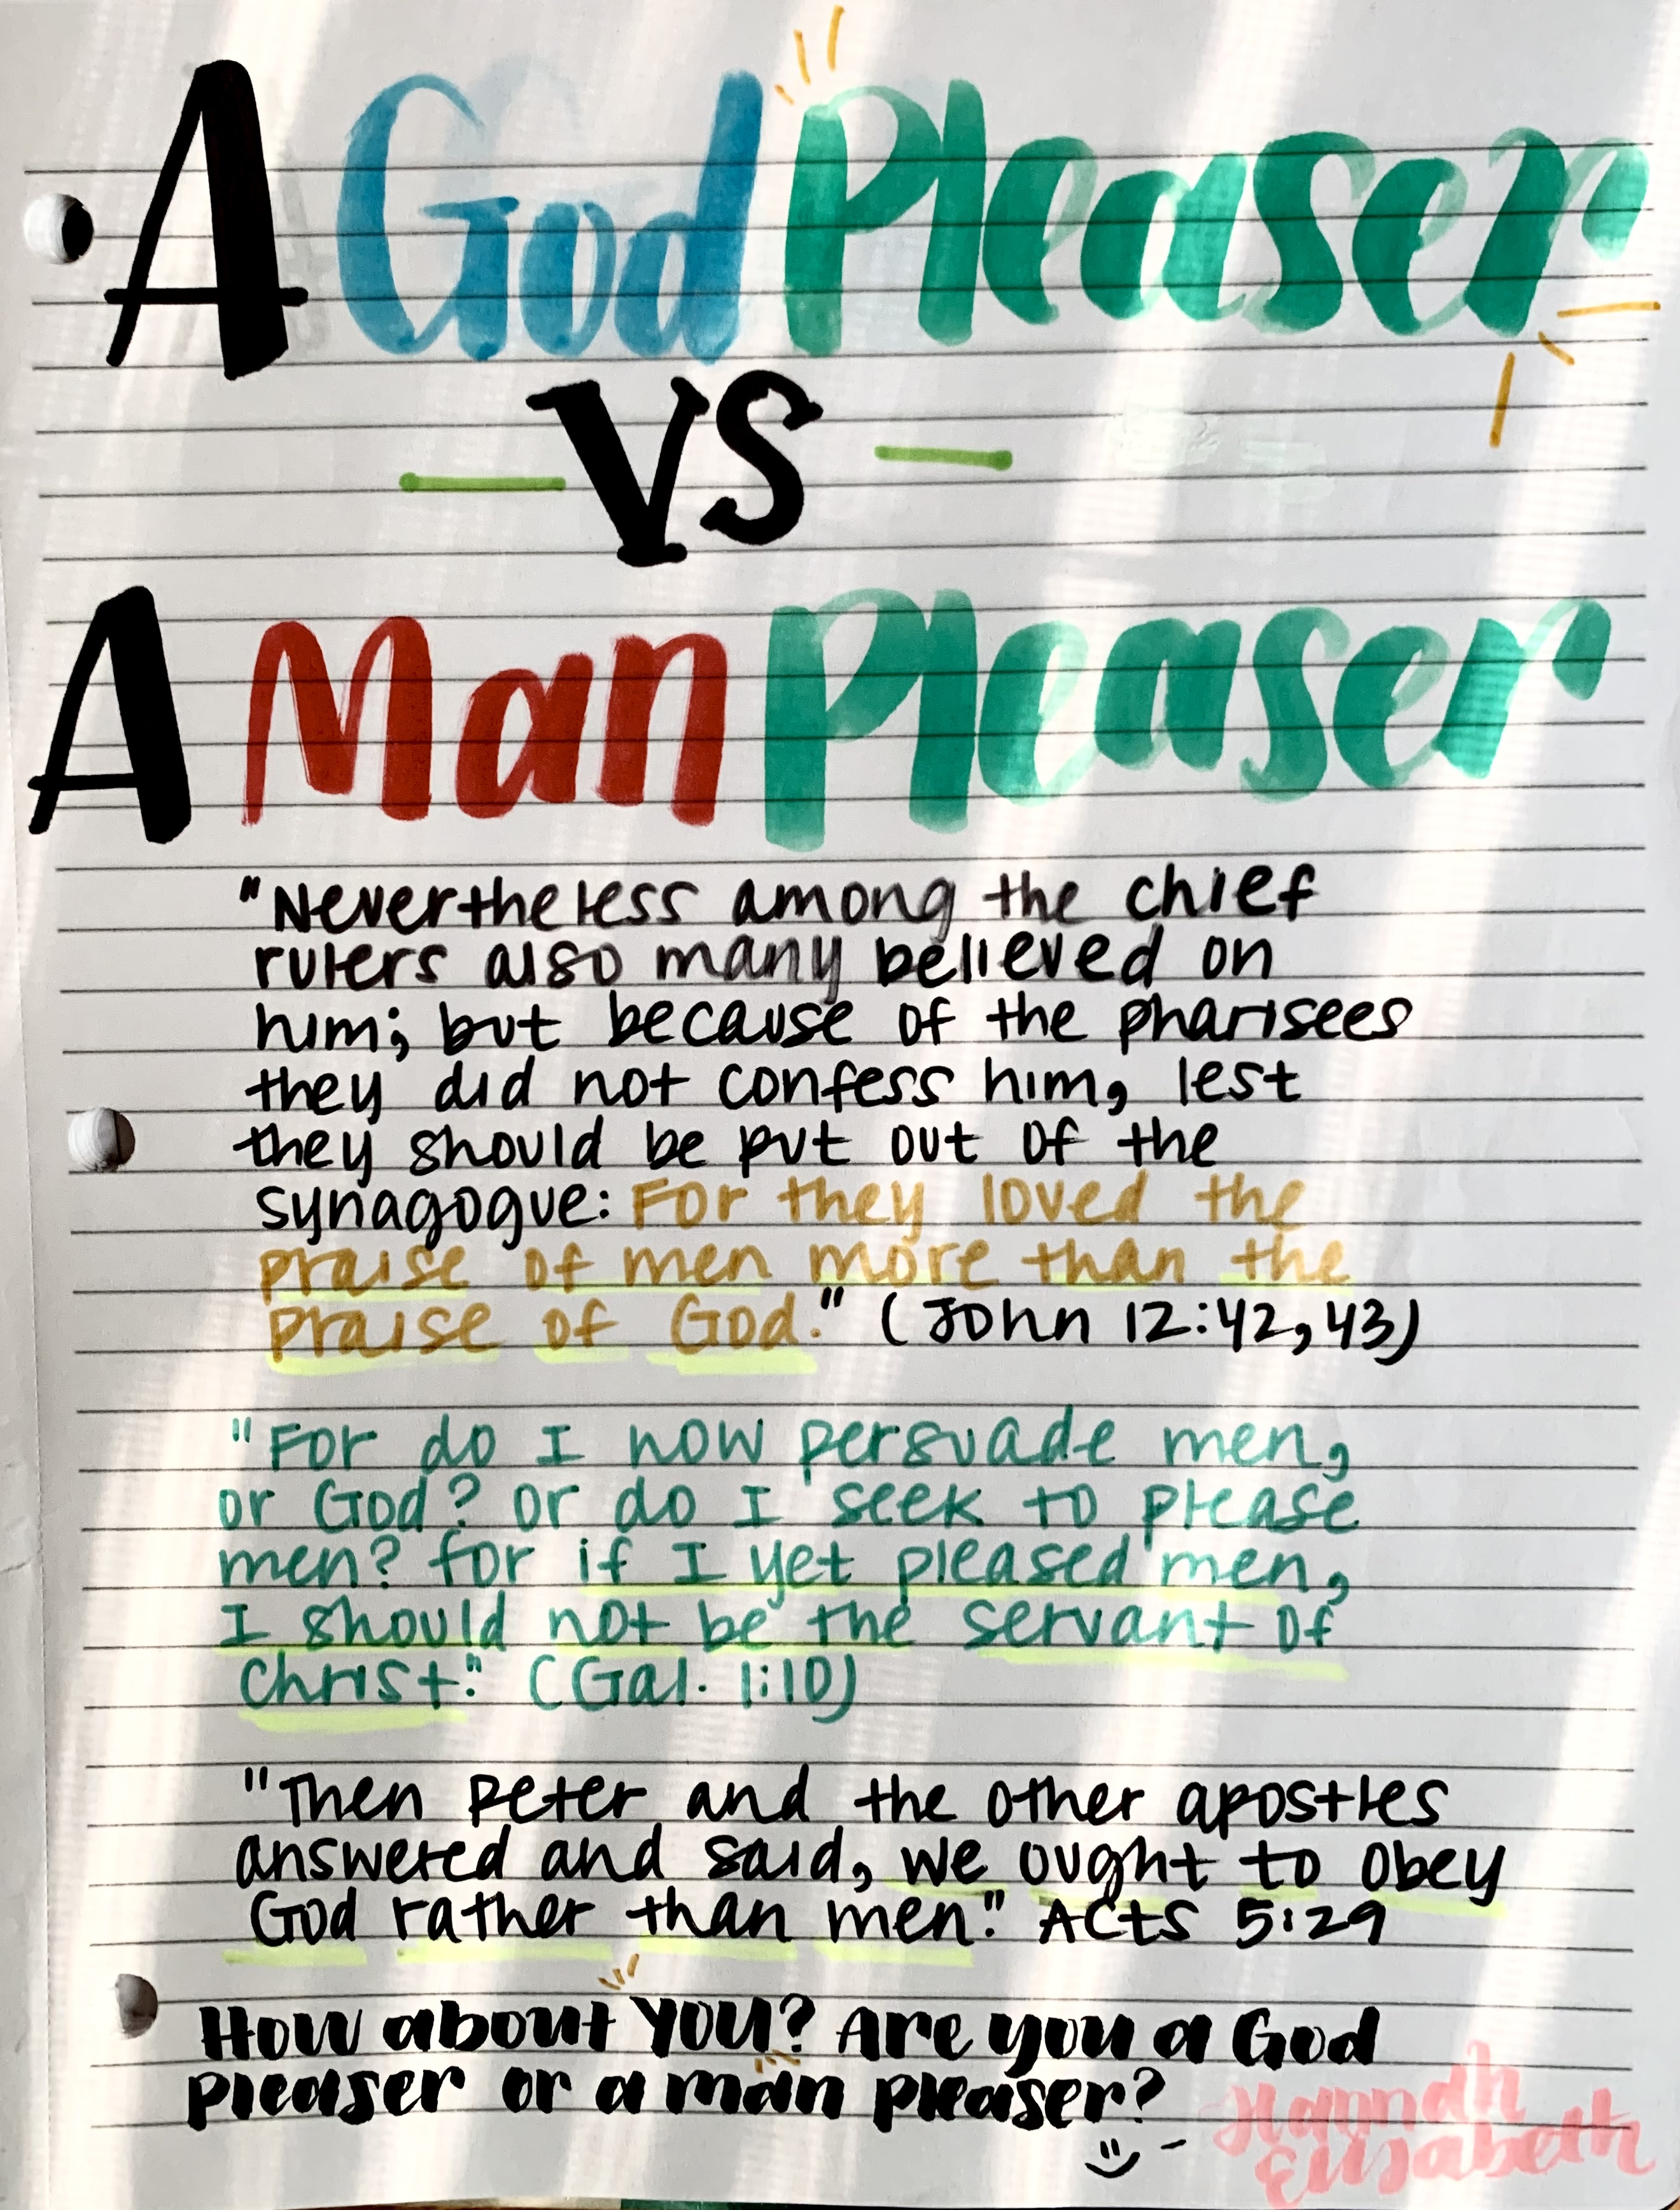 A God Pleaser
VS
A Man Pleaser
"Nevertheless among the chief
rulers also many believed on
him; but because of the pharisees
they did not confess him, lest
they should be put out of the
synagogue: For they loved the
praise of men more than the
praise of God." (John 12:42,43)
"For do I now persuade men,
or God? or do I seek to please
men? for if I yet pleased men,
I should not be the servant of
Christ." (Gal. 1:10)
"Then Peter and the other apostles
answered and said, we ought to obey
God rather than men." Acts 5:29
How about YOU? Are you a God
pleaser or a man pleaser?
Hannah
Elisabeth